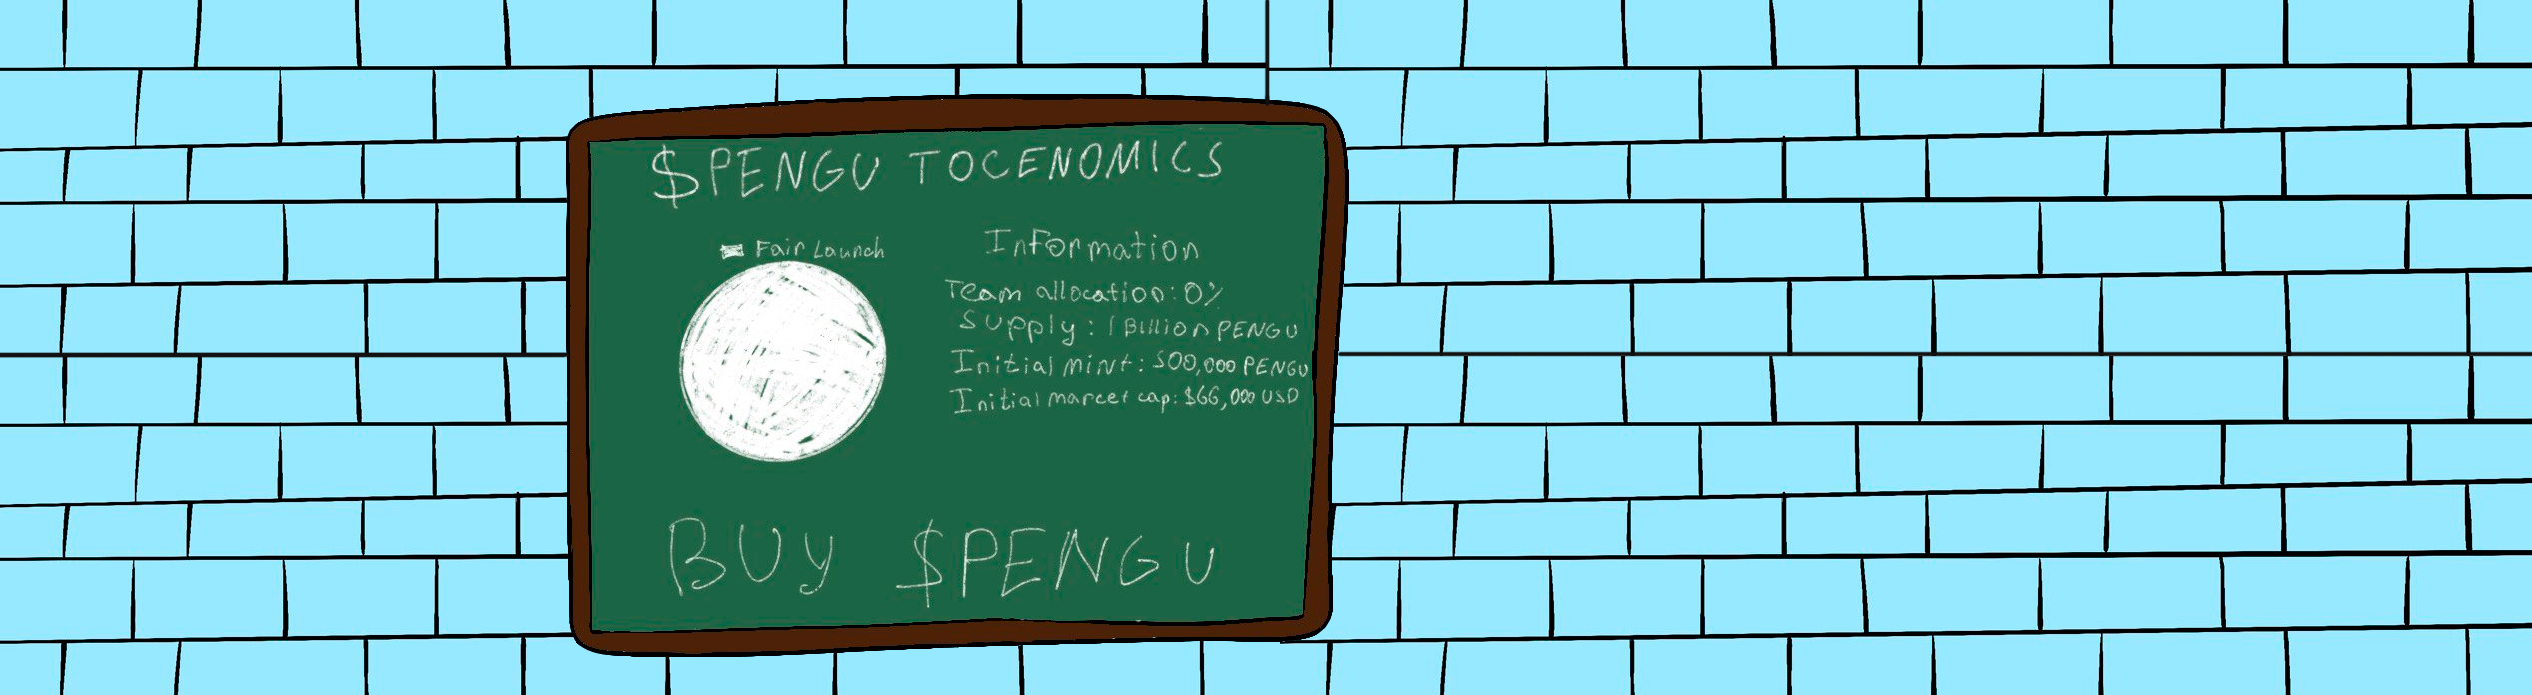 $PENGU TOCENOMICS
Fair Launch
Information
Team allocation: 0%
Supply: 1 Billion PENGU
Initial mint: 500,000 PENGU
Initial marcet cap: $66,000 USD
BUY $PENGU